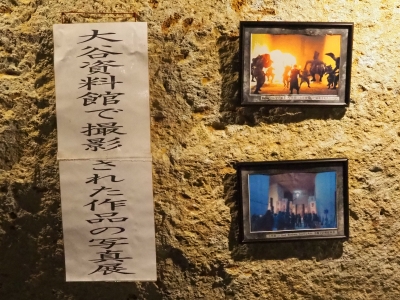 大谷資料館で撮影された作品の写真展